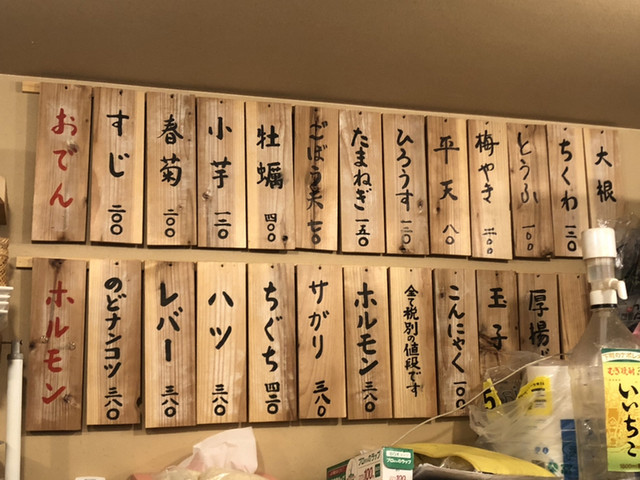 おでん
すじ 二〇〇
春菊 二〇〇
小芋 一二〇
牡蠣 四〇〇
ごぼう天 七〇
たまねぎ 一五〇
ひろうす 一二〇
平天 八〇
梅やき 二〇〇
とうふ 一〇〇
ちくわ 一二〇
大根
ホルモン
のどナンコツ 三八〇
レバー 三八〇
ハツ 三八〇
ちぐち 四二〇
サガリ 三八〇
ホルモン 三八〇
全て税別の値段です
こんにゃく 一〇〇
玉子
厚揚げ
むぎ焼酎
いいちこ
100
100